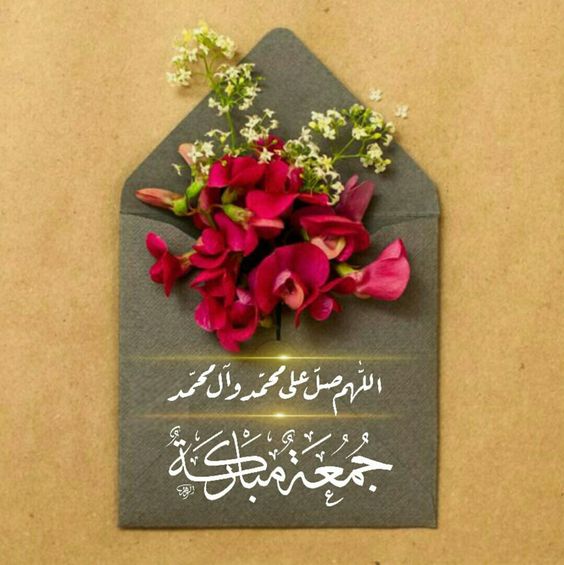 اللهم صلّ على محمّد وآل محمّد
جُمُعَةٌ مُبَارَكَةٌ